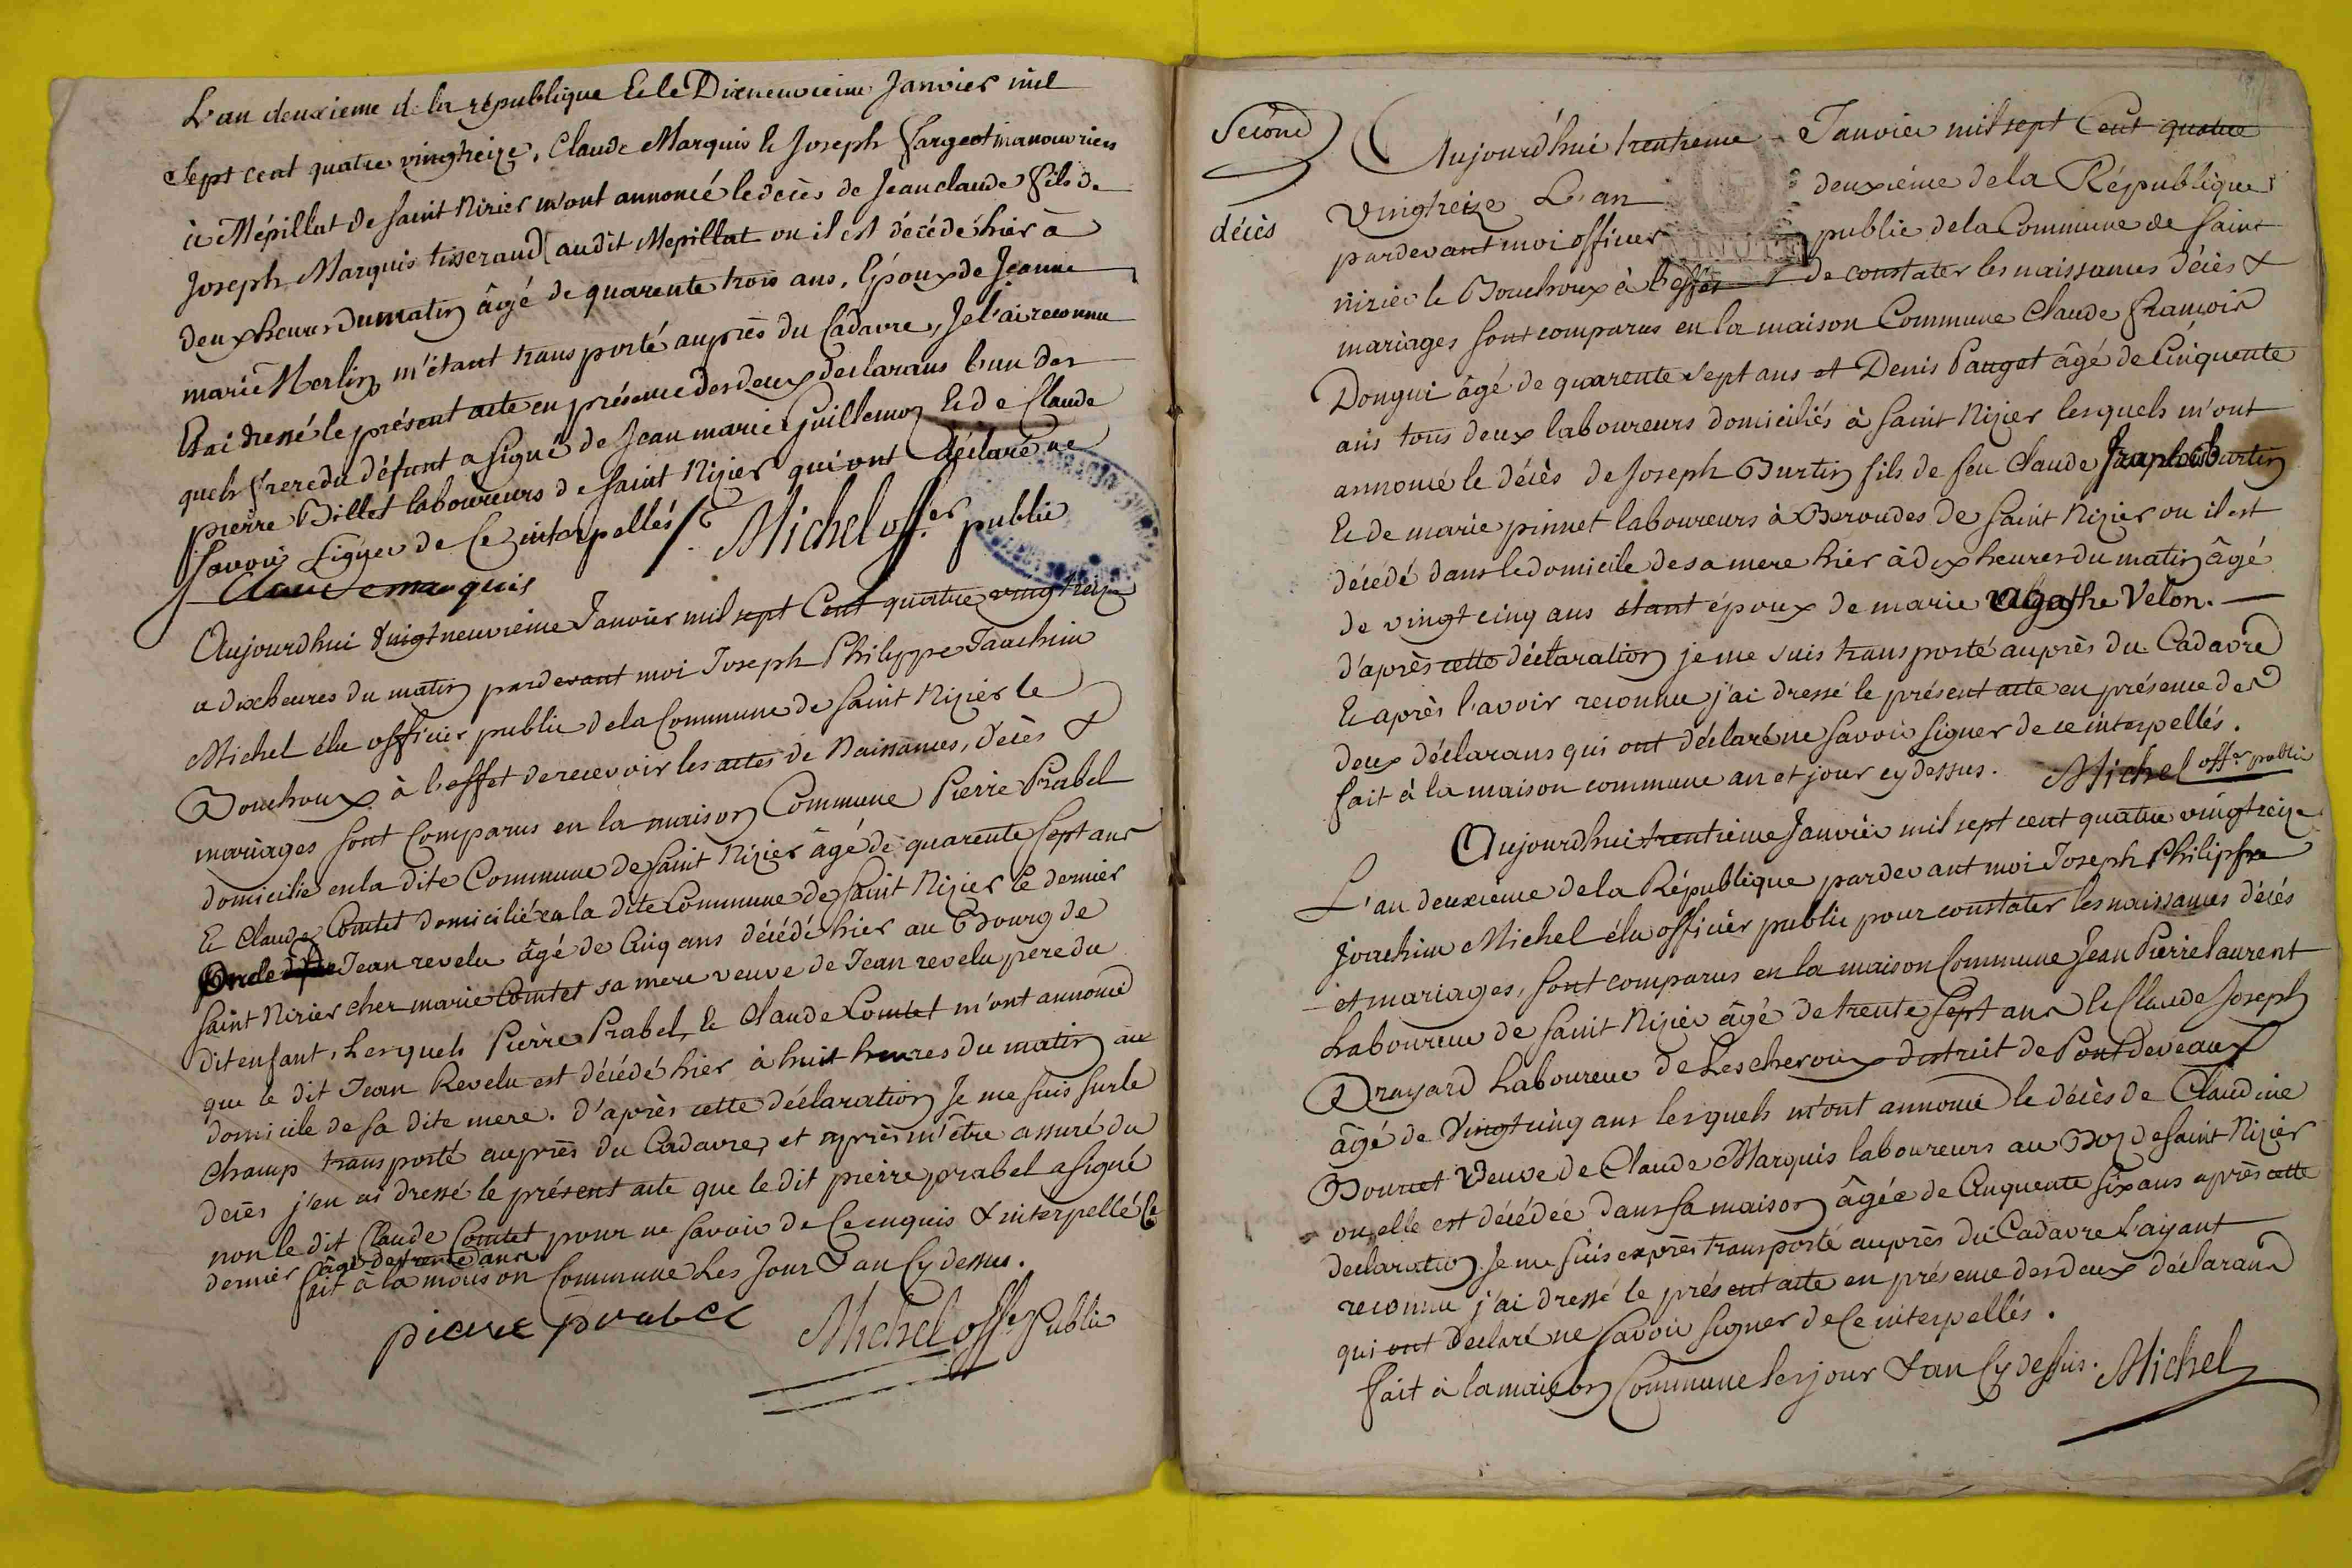 L'an deuxieme de la république Et le Dixneuvieme Janvier mil
Sept cent quatre vingtreize, Claude Marquis & Joseph fargeot manouvriers
à Mépillat de saint Nizier m'ont annoncé le décès de Jeanclaude fils de
Joseph Marquis tisserand audit Mepillat ou il est décédé hier à
deux heures du matin âgé de quarente trois ans, Epoux de Jeanne
marie Merlin, m'étant transporté auprès du Cadavre, Je l'ai reconnu
Et ai dressé le présent acte en présence des deux declarans l'un des
quels frere du défunt a signé de Jean marie Guillemon Et de Claude
pierre Billet laboureurs de saint Nizier qui ont déclaré ne
savoir signer de Ce interpellés
Michel offer public
Claude marquis
Aujourdhui Vingtneuvieme Janvier mil sept Cent quatre vingtreize
a dix heures du matin pardevant moi Joseph Philippe Jauchim
Michel élu officier public dela Commune de saint Nizier le
Bouchoux à l'effet de recevoir les actes de Naissances, décès &
mariages sont Comparus en la maison Commune Pierre Prabel
domicilié en la dite Commune de saint Nizier âgé de quarente sept ans
Et Claude Comtet domicilié en la dite Commune de saint Nizier le dernier
oncle de Jean revelu âgé de Cinq ans décédé hier au Bourg de
saint Nizier chez marie Comtet sa mere veuve de Jean revelu pere du
dit enfant, Lesquels Pierre Prabel, & Claude Comtet m'ont annoncé
que le dit Jean Revelu est décédé hier à huit heures du matin au
domicile de sa dite mere. d'après cette déclaration Je me suis surle
champ transporté auprès du Cadavre, et après m'être assuré du
decès j'en ai dressé le présent acte que le dit pierre prabel a signé
non le dit Claude Comtet pour ne savoir de Ce enquis & interpellé Ce
dernier âgé de trente ans
fait à la maison Commune Les Jour & an Cy dessus.
pierre prabel
Michel offer Public
Second
décès
Aujourd'hui trentieme Janvier mil sept Cent quatre
Vingtreize L'an deuxiéme dela République
pardevant moi officier public dela Commune de saint
MINUTE
nizier le Bouchoux à l'effet de constater les naissances décès &
mariages sont comparus en la maison Commune Claude François
Dongui âgé de quarente sept ans et Denis Pauget âgé de Cinquente
ans tous deux laboureurs domiciliés à saint Nizier lesquels m'ont
annoncé le décès de Joseph Burtin fils de feu Claude Burtin
Et de marie pinnet laboureurs à Beroudes de saint Nizier ou il est
décédé dans le domicile de sa mere hier à dix heures du matin âgé
de vingt cinq ans étant époux de marie Agathe Velon.
d'après cette déclaration je me suis transporté auprès du Cadavre
Et après l'avoir reconnu j'ai dressé le présent acte en présence des
deux déclarans qui ont déclaré ne savoir signer de ce interpellés.
fait à la maison commune an et jour cy dessus. Michel offer public
Aujourdhui trentieme Janvier mil sept cent quatre vingtreize
L'an deuxieme dela République pardevant moi Joseph Philippe
Joachim Michel élu officier public pour constater les naissances décès
et mariages, sont comparus en la maison Commune Jean Pierre laurent
Laboureur de saint Nizier âgé de trente sept ans & Claude Joseph
Drayard Laboureur de Lescheroux district de Pontdeveaux
âgé de Vingtcinq ans lesquels m'ont annoncé le décès de Claudine
Bourcet Veuve de Claude Marquis laboureurs au Boz de saint Nizier
ou elle est décédée dans sa maison âgée de Cinquente six ans après cette
declaration. Je me suis exprès transporté auprès du Cadavre l'ayant
reconnu j'ai dressé le présent acte en présence des deux déclarans
qui ont declaré ne savoir signer de Ce interpellés.
fait à la maison Commune les jour & an Cy dessus. Michel